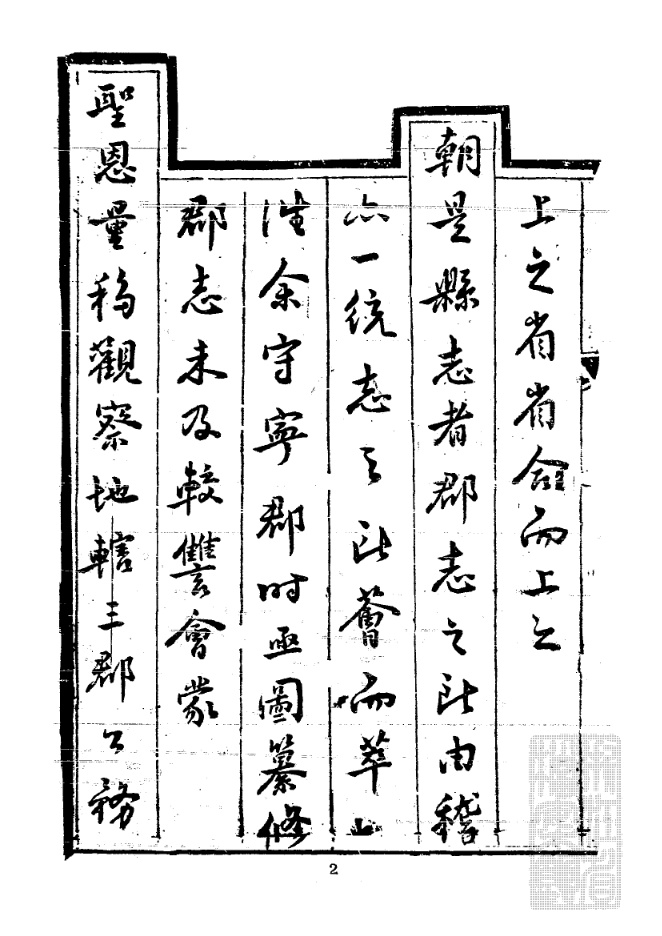 上之省省而上之
朝是縣志者郡志之所由稽
亦一統志之所薈而萃也
往余守寧郡時亟圖纂修
郡志未及較讐會蒙
聖恩量移觀察地轄三郡公務
2